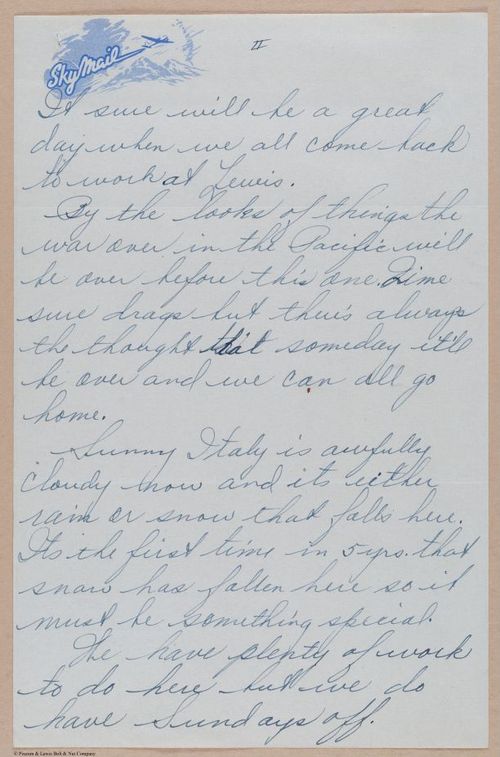 II
Sky Mail
It sure will be a great
day when we all come back
to work at Lewis.
By the looks of things the
war over in the Pacific will
be over before this one. Time
sure drags but there's always
the thought that someday it'll
be over and we can all go
home.
Sunny Italy is awfully
cloudy now and its either
rain or snow that falls here.
Its the first time in 5 yrs. that
snow has fallen here so it
must be something special.
We have plenty of work
to do here but we do
have Sundays off.
© Pearson & Lewis Bolt & Nut Company